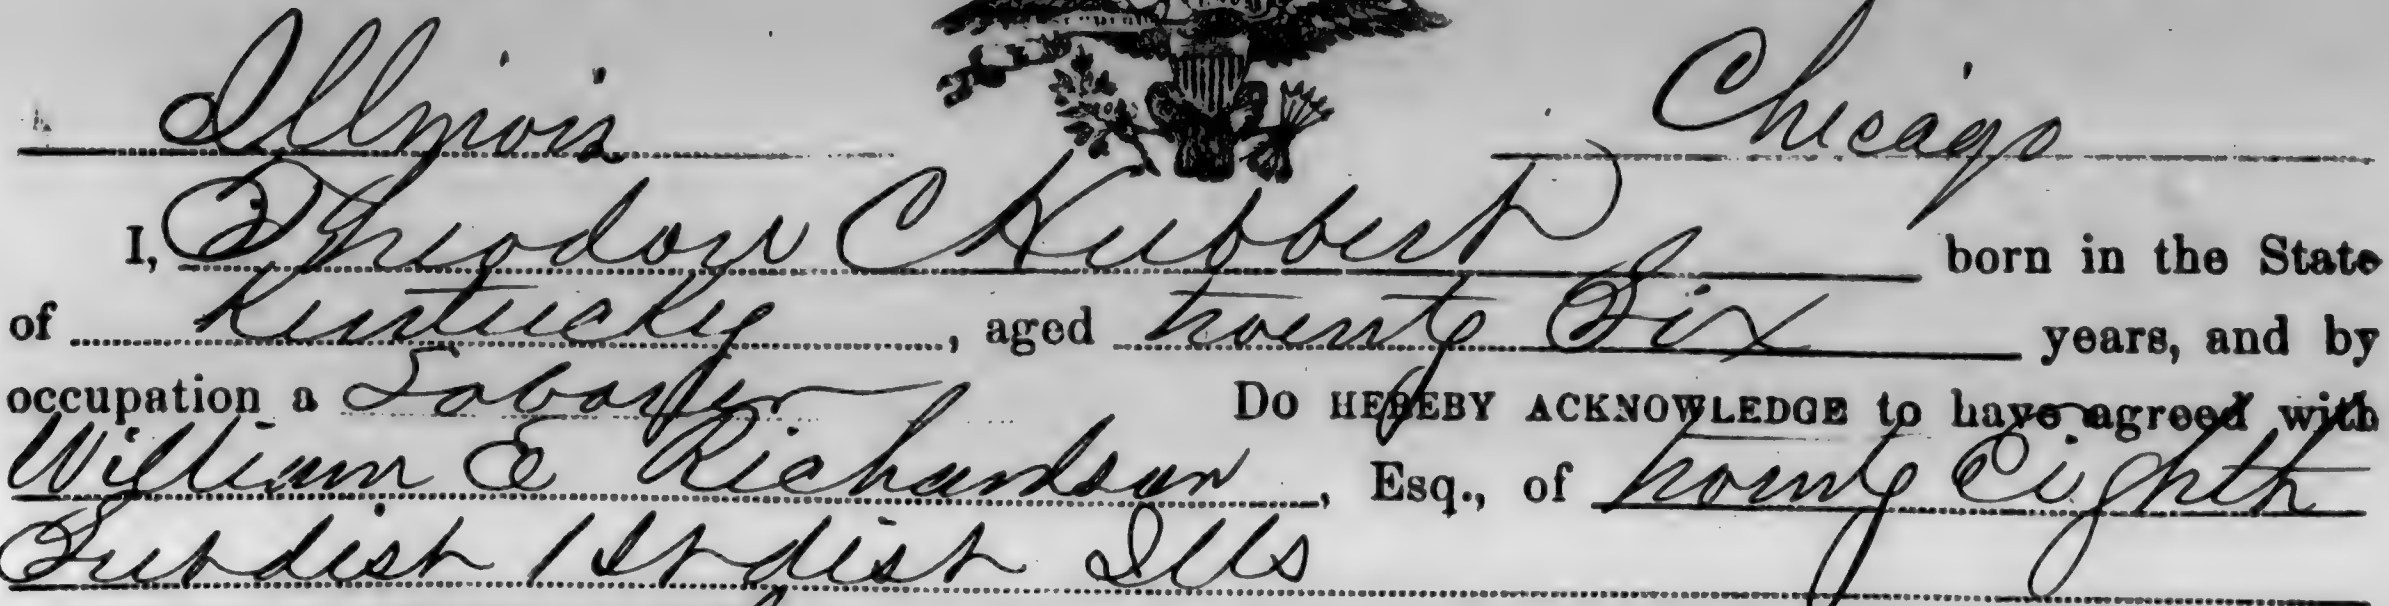 Illinois Chicago
I, Theodore C Hubbert born in the State
of Kentucky, aged twenty Six years, and by
occupation a Laborer Do HEREBY ACKNOWLEDGE to have agreed with
William E Richardson, Esq., of twenty Eighth
Subdist 1st dist Ills